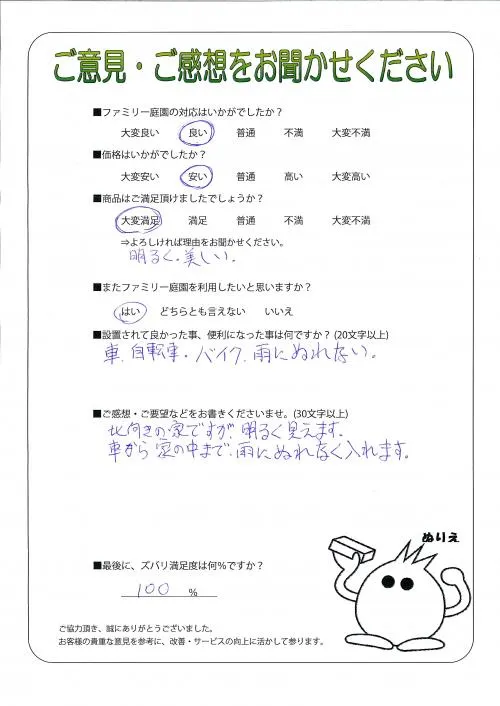 ご意見・ご感想をお聞かせください
■ファミリー庭園の対応はいかがでしたか？
大変良い 良い 普通 不満 大変不満
■価格はいかがでしたか？
大変安い 安い 普通 高い 大変高い
■商品はご満足頂けましたでしょうか？
大変満足 満足 普通 不満 大変不満
⇒よろしければ理由をお聞かせください。
明るく、美しい。
■またファミリー庭園を利用したいと思いますか？
はい どちらとも言えない いいえ
■設置されて良かった事、便利になった事は何ですか？(20文字以上)
車、自転車・バイク、雨にぬれない。
■ご感想・ご要望などをお書きくださいませ。(30文字以上)
北向きの家ですが、明るく見えます。
車から家の中まで、雨にぬれなく入れます。
ぬりえ
■最後に、ズバリ満足度は何％ですか？
100 %
ご協力頂き、誠にありがとうございました。
お客様の貴重な意見を参考に、改善・サービスの向上に活かして参ります。